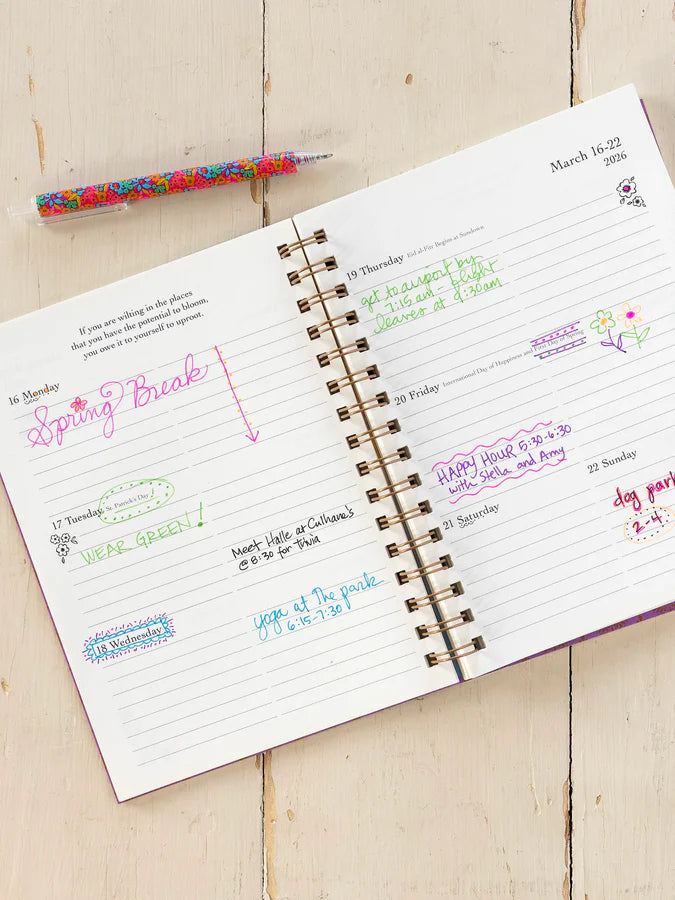 If you are wilting in the places
that you have the potential to bloom,
you owe it to yourself to uproot.
16 Monday
Spring Break
17 Tuesday St. Patrick's Day
WEAR GREEN!
Meet Halle at Culhane's
@ 8:30 for Trivia
18 Wednesday
yoga at The park
6:15-7:30
March 16-22
2026
19 Thursday Eid al-Fitr Begins at Sundown
get to airport by
7:15 am - flight
leaves at 9:30am
20 Friday International Day of Happiness and First Day of Spring
HAPPY HOUR 5:30-6:30
with Stella and Amy
21 Saturday
22 Sunday
dog park
2-4